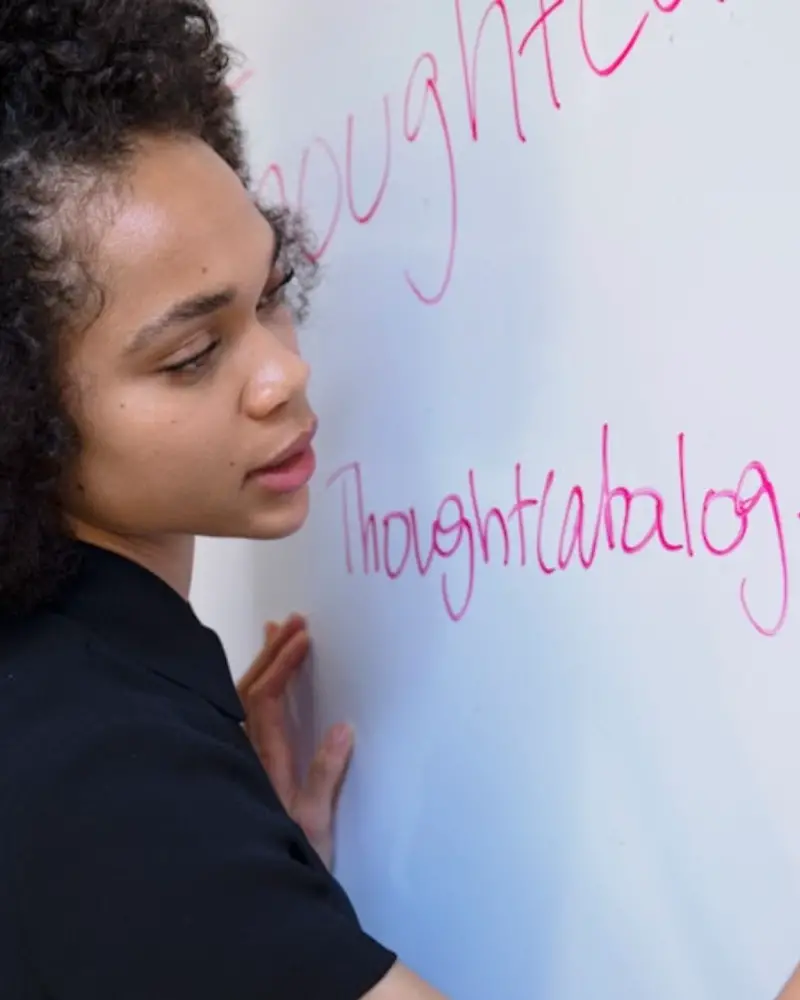 oughtCa
ThoughtCabalog.